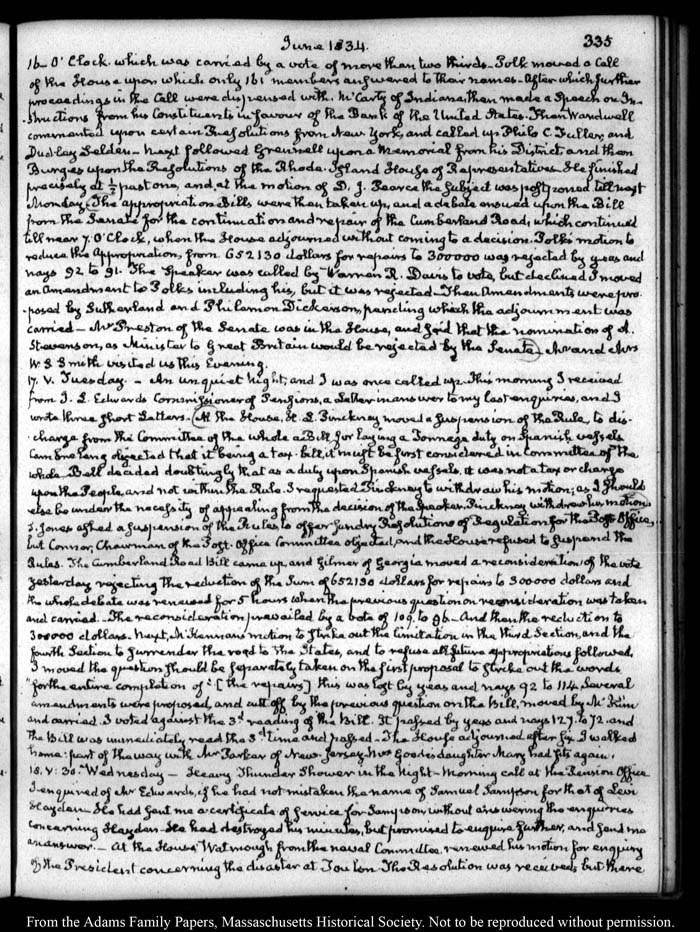 June 1834. 335
16 O'Clock. which was carried by a vote of more than two thirds. Polk moved a Call
of the House upon which only 161 members answered to their names. After which further
proceedings in the Call were dispensed with. McCarty of Indiana, then made a Speech on In-
structions from his Constituents in favour of the Bank of the United States. Then Wardwell
commented upon certain Resolutions from New York, and called up Philo C. Fuller, and
Dudley Selden. Next followed Grennell upon a Memorial from his District and then
Burges upon the Resolutions of the Rhode-Island House of Representatives. He finished
precisely at ½ past one, and, at the motion of D. J. Pearce the Subject was postponed till next
Monday. The appropriation Bills were then taken up, and a debate ensued upon the Bill
from the Senate for the continuation and repair of the Cumberland Road, which continued
till near 7. O'Clock, when the House adjourned without coming to a decision. Polk's motion to
reduce the Appropriation, from 652130 dollars for repairs to 300000 was rejected by yeas and
nays 92 to 91. The Speaker was called by Warren R. Davis to vote, but declined. I moved
an Amendment to Polks including his, but it was rejected. Then Amendments were pro-
posed by Sutherland and Philemon Dickerson, pending which the adjournment was
carried. Mr Preston of the Senate was in the House, and said that the nomination of A.
Stevenson, as Minister to Great Britain would be rejected by the Senate. Mr and Mrs
W. S. Smith visited us this Evening.
17. V. Tuesday. - An unquiet Night, and I was once called up. This morning I received
from J. L. Edwards Commissioner of Pensions, a Letter in answer to my last enquiries, and I
wrote three short Letters. At the House, H. L. Pinckney moved a suspension of the Rule, to dis-
charge from the Committee of the whole a Bill for laying a Tonnage duty on Spanish vessels
Cambreleng objected that it being a tax-bill, it must be first considered in Committee of the
whole. Bell decided doubtingly that as a duty upon Spanish vessels, it was not a tax or charge
upon the People, and not within the Rule. I requested Pinckney to withdraw his motion, as I should
else be under the necessity of appealing from the decision of the Speaker. Pinckney withdrew his motion.
S. Jones asked a suspension of the Rules, to offer sundry Resolutions of Regulation for the Post-Office,
but Connor, Chairman of the Post-Office Committee objected, and the House refused to suspend the
Rules. The Cumberland Road Bill came up, and Gilmer of Georgia moved a reconsideration of the vote
yesterday rejecting the reduction of the Sum of 652130 dollars for repairs to 300000 dollars and
the whole debate was renewed for 5 hours when the previous question on reconsideration was taken
and carried. The reconsideration prevailed by a vote of 109. to 86. And then the reduction to
300000 dollars. Next, McKennan's motion to strike out the limitation in the third Section, and the
fourth Section to surrender the road to the States, and to refuse all future appropriations followed.
I moved the question should be separately taken on the first proposal to strike out the words
"for the entire completion of" [the repairs] this was lost by yeas and nays 92 to 114. Several
amendments were proposed, and cut off by the previous question on the Bill, moved by McKim
and carried. I voted against the 3d reading of the Bill. It passed by yeas and nays 127. to 72. and
the Bill was immediately read the 3d time and passed. The House adjourned after six. I walked
home: part of the way with Mr Parker of New-Jersey. Mrs daughter Mary had fits again.
18. V: 30. Wednesday - Heavy Thunder Shower in the Night. Morning call at the Pension Office
I enquired of Mr Edwards, if he had not mistaken the name of Samuel Sampson for that of Levi
Hayden. He had sent me a certificate of service for Sampson, without answering the enquiries
concerning Hayden. He had destroyed his minutes, but promised to enquire further, and send me
an answer. - At the House Watmough from the naval Committee, renewed his motion for enquiry
of the President concerning the disaster at Toulon. The Resolution was received, but there
From the Adams Family Papers, Massachusetts Historical Society. Not to be reproduced without permission.